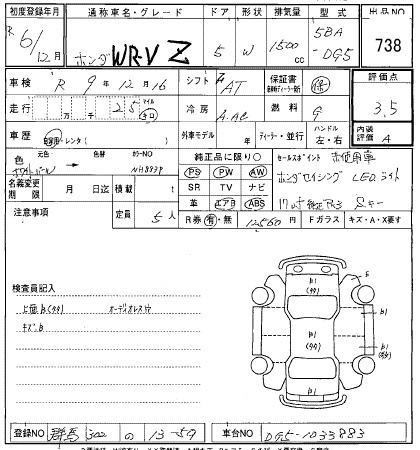 初度登録年月 通称車名・グレード ドア 形状 排気量 型式 出品NO
R 6/12月 ホンダ WR-V Z 5 W 1500cc 5BA-DG5 738
車検 R 9年 12月 16 シフト AT 保証書 保 評価点
走行 万 千 25 マイル キロ 冷房 A.AC 燃料 G 3.5
車歴 レンタ( ) 外車モデル 年 ディーラー・並行 ハンドル 左・右 内装評価 A
色 元色 色替 カラーNO NH883P
純正品に限り○ セールスポイント 未使用車
PS PW AW ホンダセンシング LEDライト
名義変更期限 月 日迄 積載 t SR TV ナビ
革 エアB ABS
注意事項 定員 5人 R券 有・無 12560円 Fガラス キズ・A・X要す
検査員記入
上面b(タタ) オーディオレス
キズb
b1
(タタ)
b1
(タタ)
b1
b1
登録NO 群馬 302 の 13-59 車台NO DG5-1033883